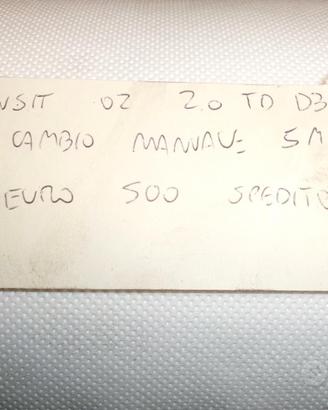 NSIT 02 2.0 TD D3
CAMBIO MANUALE 5M
EURO 500 SPEDITO